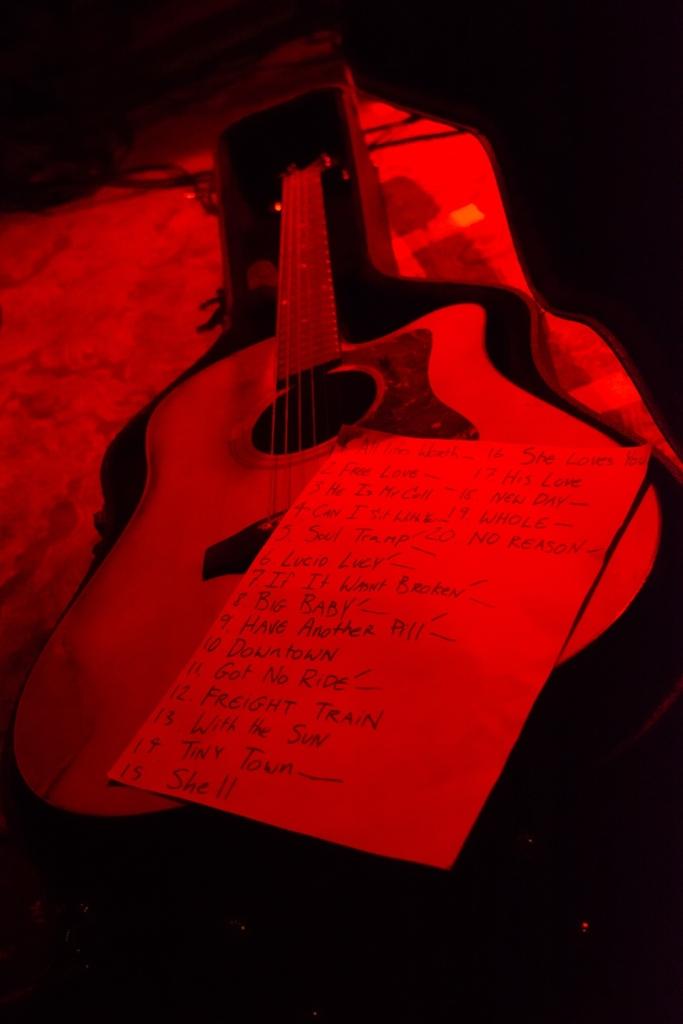 Worth — 16 She Loves You
2. Free Love — 17 His Love
3 He Is My Call — 18 NEW DAY —
4 CAN I Sit With — 19. WHOLE —
5. Soul Tramp 20 NO REASON —
6. LUCID LUCY —
7 If It WASNT BROKEN —
8 BIG BABY —
9. HAVE Another Pill —
10 DOWNTOWN
11. Got No RIDE —
12. FREIGHT TRAIN
13 With the SUN
14 TINY TOWN —
15 Shell